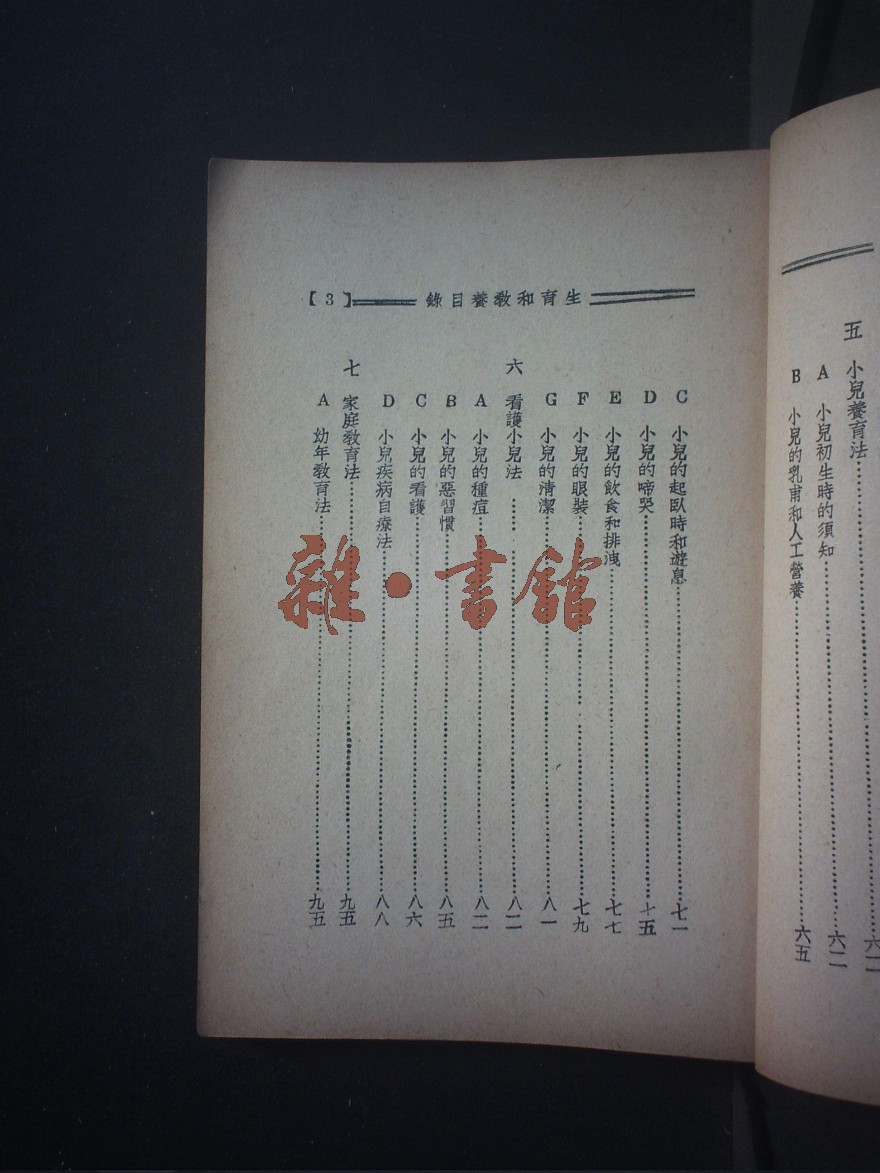 五 小兒養育法……六二
A 小兒初生時的須知……六二
B 小兒的乳甫和人工營養……六五
生育和教養目錄【3】
C 小兒的起臥時和遊息……七一
D 小兒的啼哭……七五
E 小兒的飲食和排洩……七七
F 小兒的眼裝……七九
G 小兒的清潔……八一
六 看護小兒法……八二
A 小兒的種痘……八二
B 小兒的惡習慣……八五
C 小兒的看護……八六
D 小兒疾病自療法……八八
七 家庭教育法……九五
A 幼年教育法……九五
雜·書館